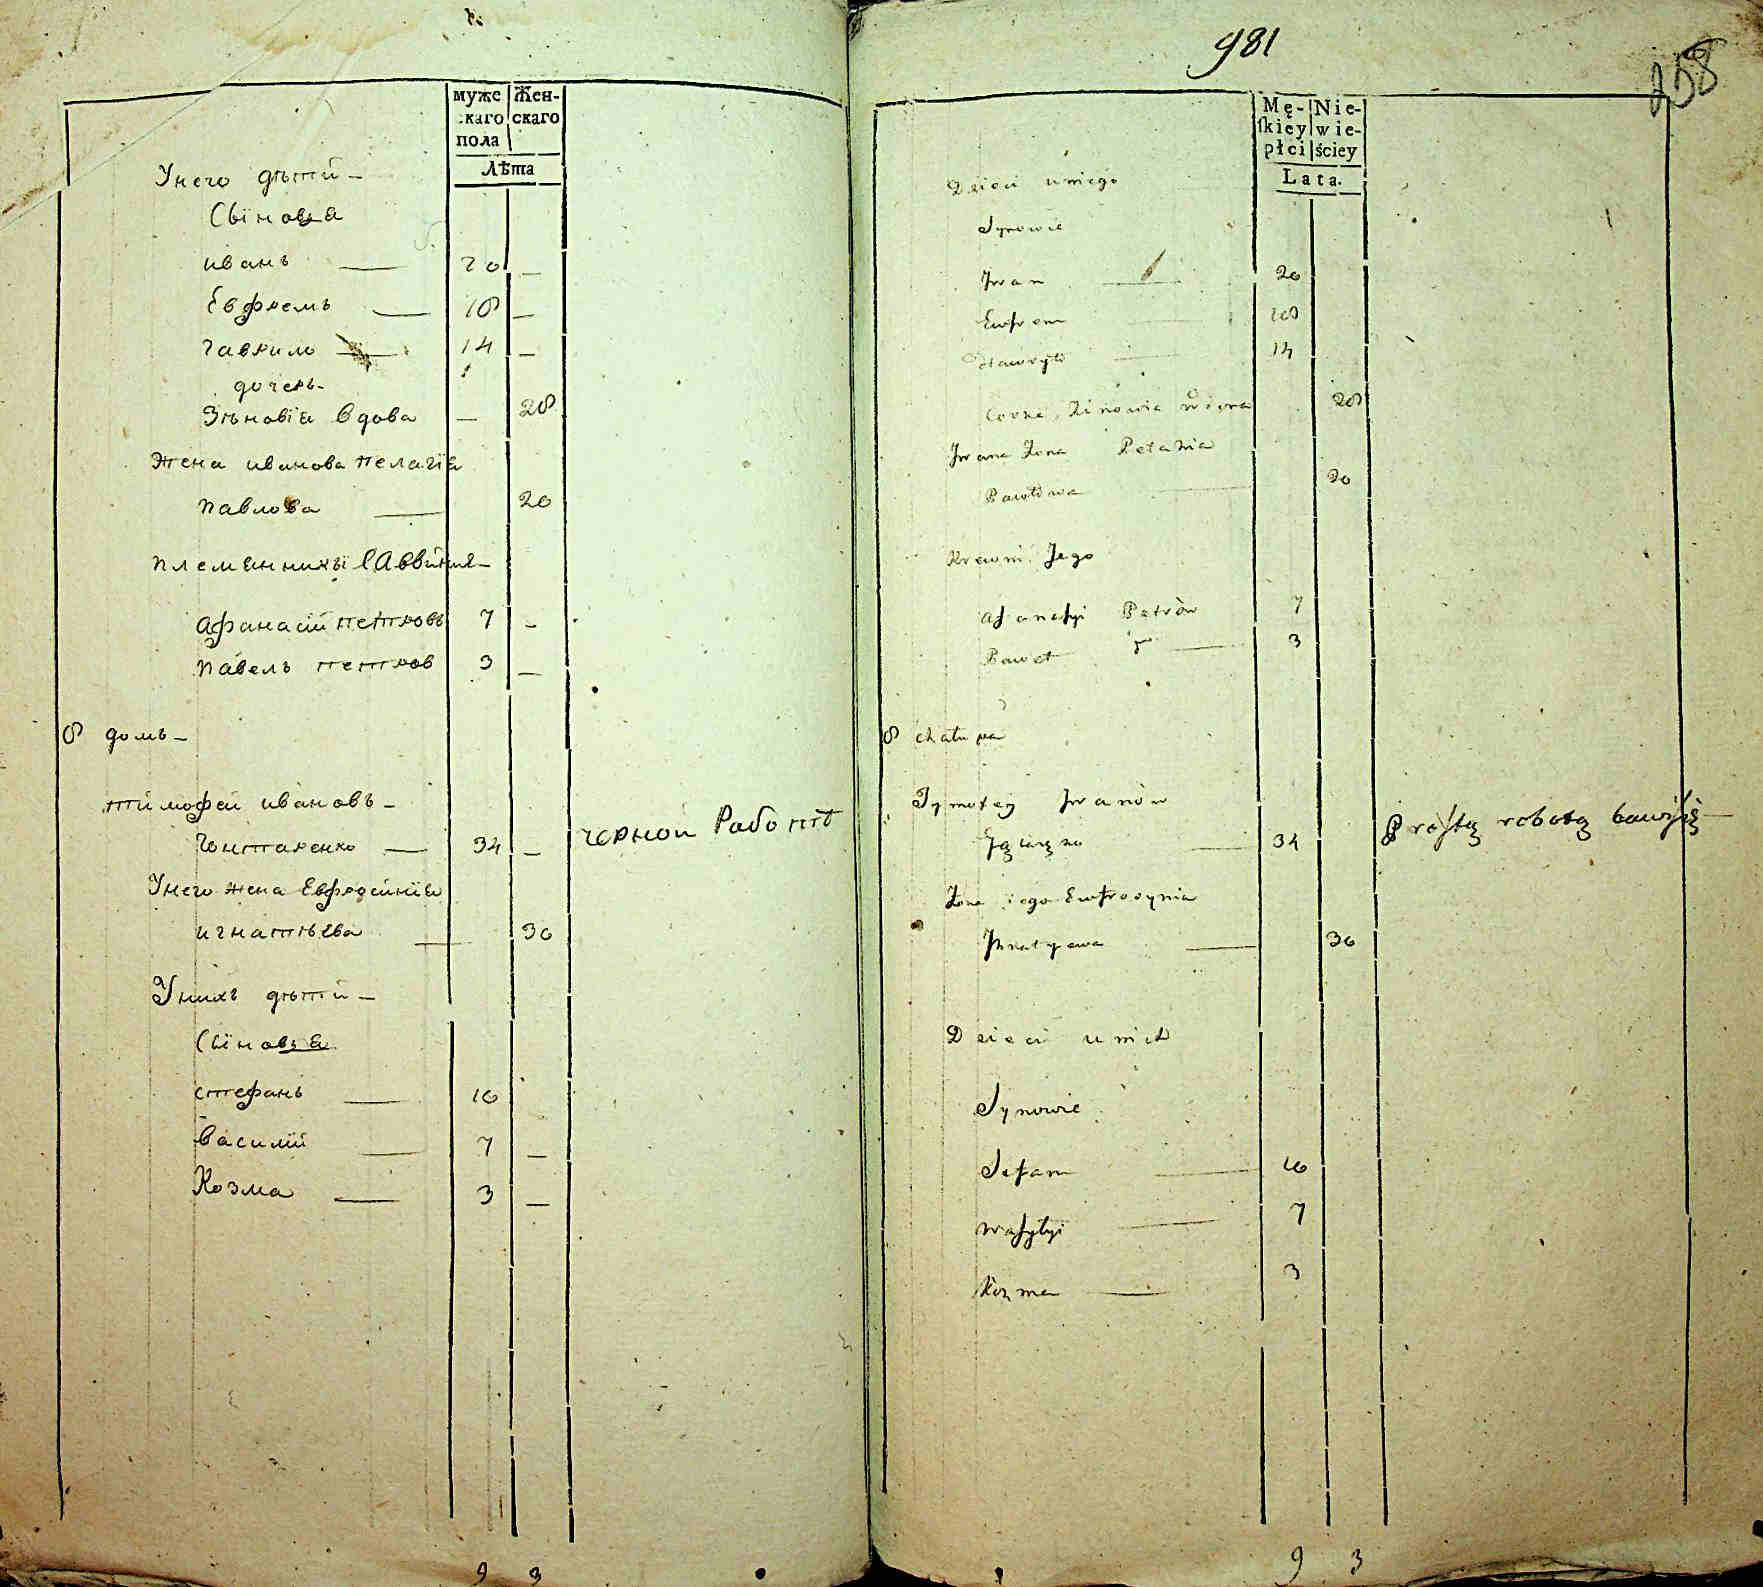 муже Жен-
скаго скаго
пола
Лѣта
Унего дѣти -
Сынов
иванъ — 20 —
Евфремъ — 18 —
гаврило — 14 —
дочерь -
Зѣновіа вдова — 28
Жена иванова пелагіа
павлова — 20
племянники
афанасій петровъ 7 —
павелъ петров 3 —
8 домъ -
тимофей ивановъ -
34 — черной работѣ
Унего жена
игнатьева — 30
Унихъ дѣти -
Сынов
стефанъ — 10
василій — 7 —
Козма — 3 —
9 3
981
258
Mę- Nie-
skiey wie-
płci ściey
Lata.
Dzieci uniego
Synowie
Jwan — 20
Ewfrem — 18
Hawryło — 14
Corka Zinowia 28
Jwana Zona Pelahia
Pawłowa — 20
Krewni Jego
Afanasyi Petrow 7
Paweł — 3
8 chałupa
Tymofey Jwanow
34 Prostą robotą bawi się —
Zona iego Ewfrosynia
Jhnatyewa — 30
Dzieci unich
Synowie
Stefan — 10
Wasylyi — 7
Kozma — 3
9 3